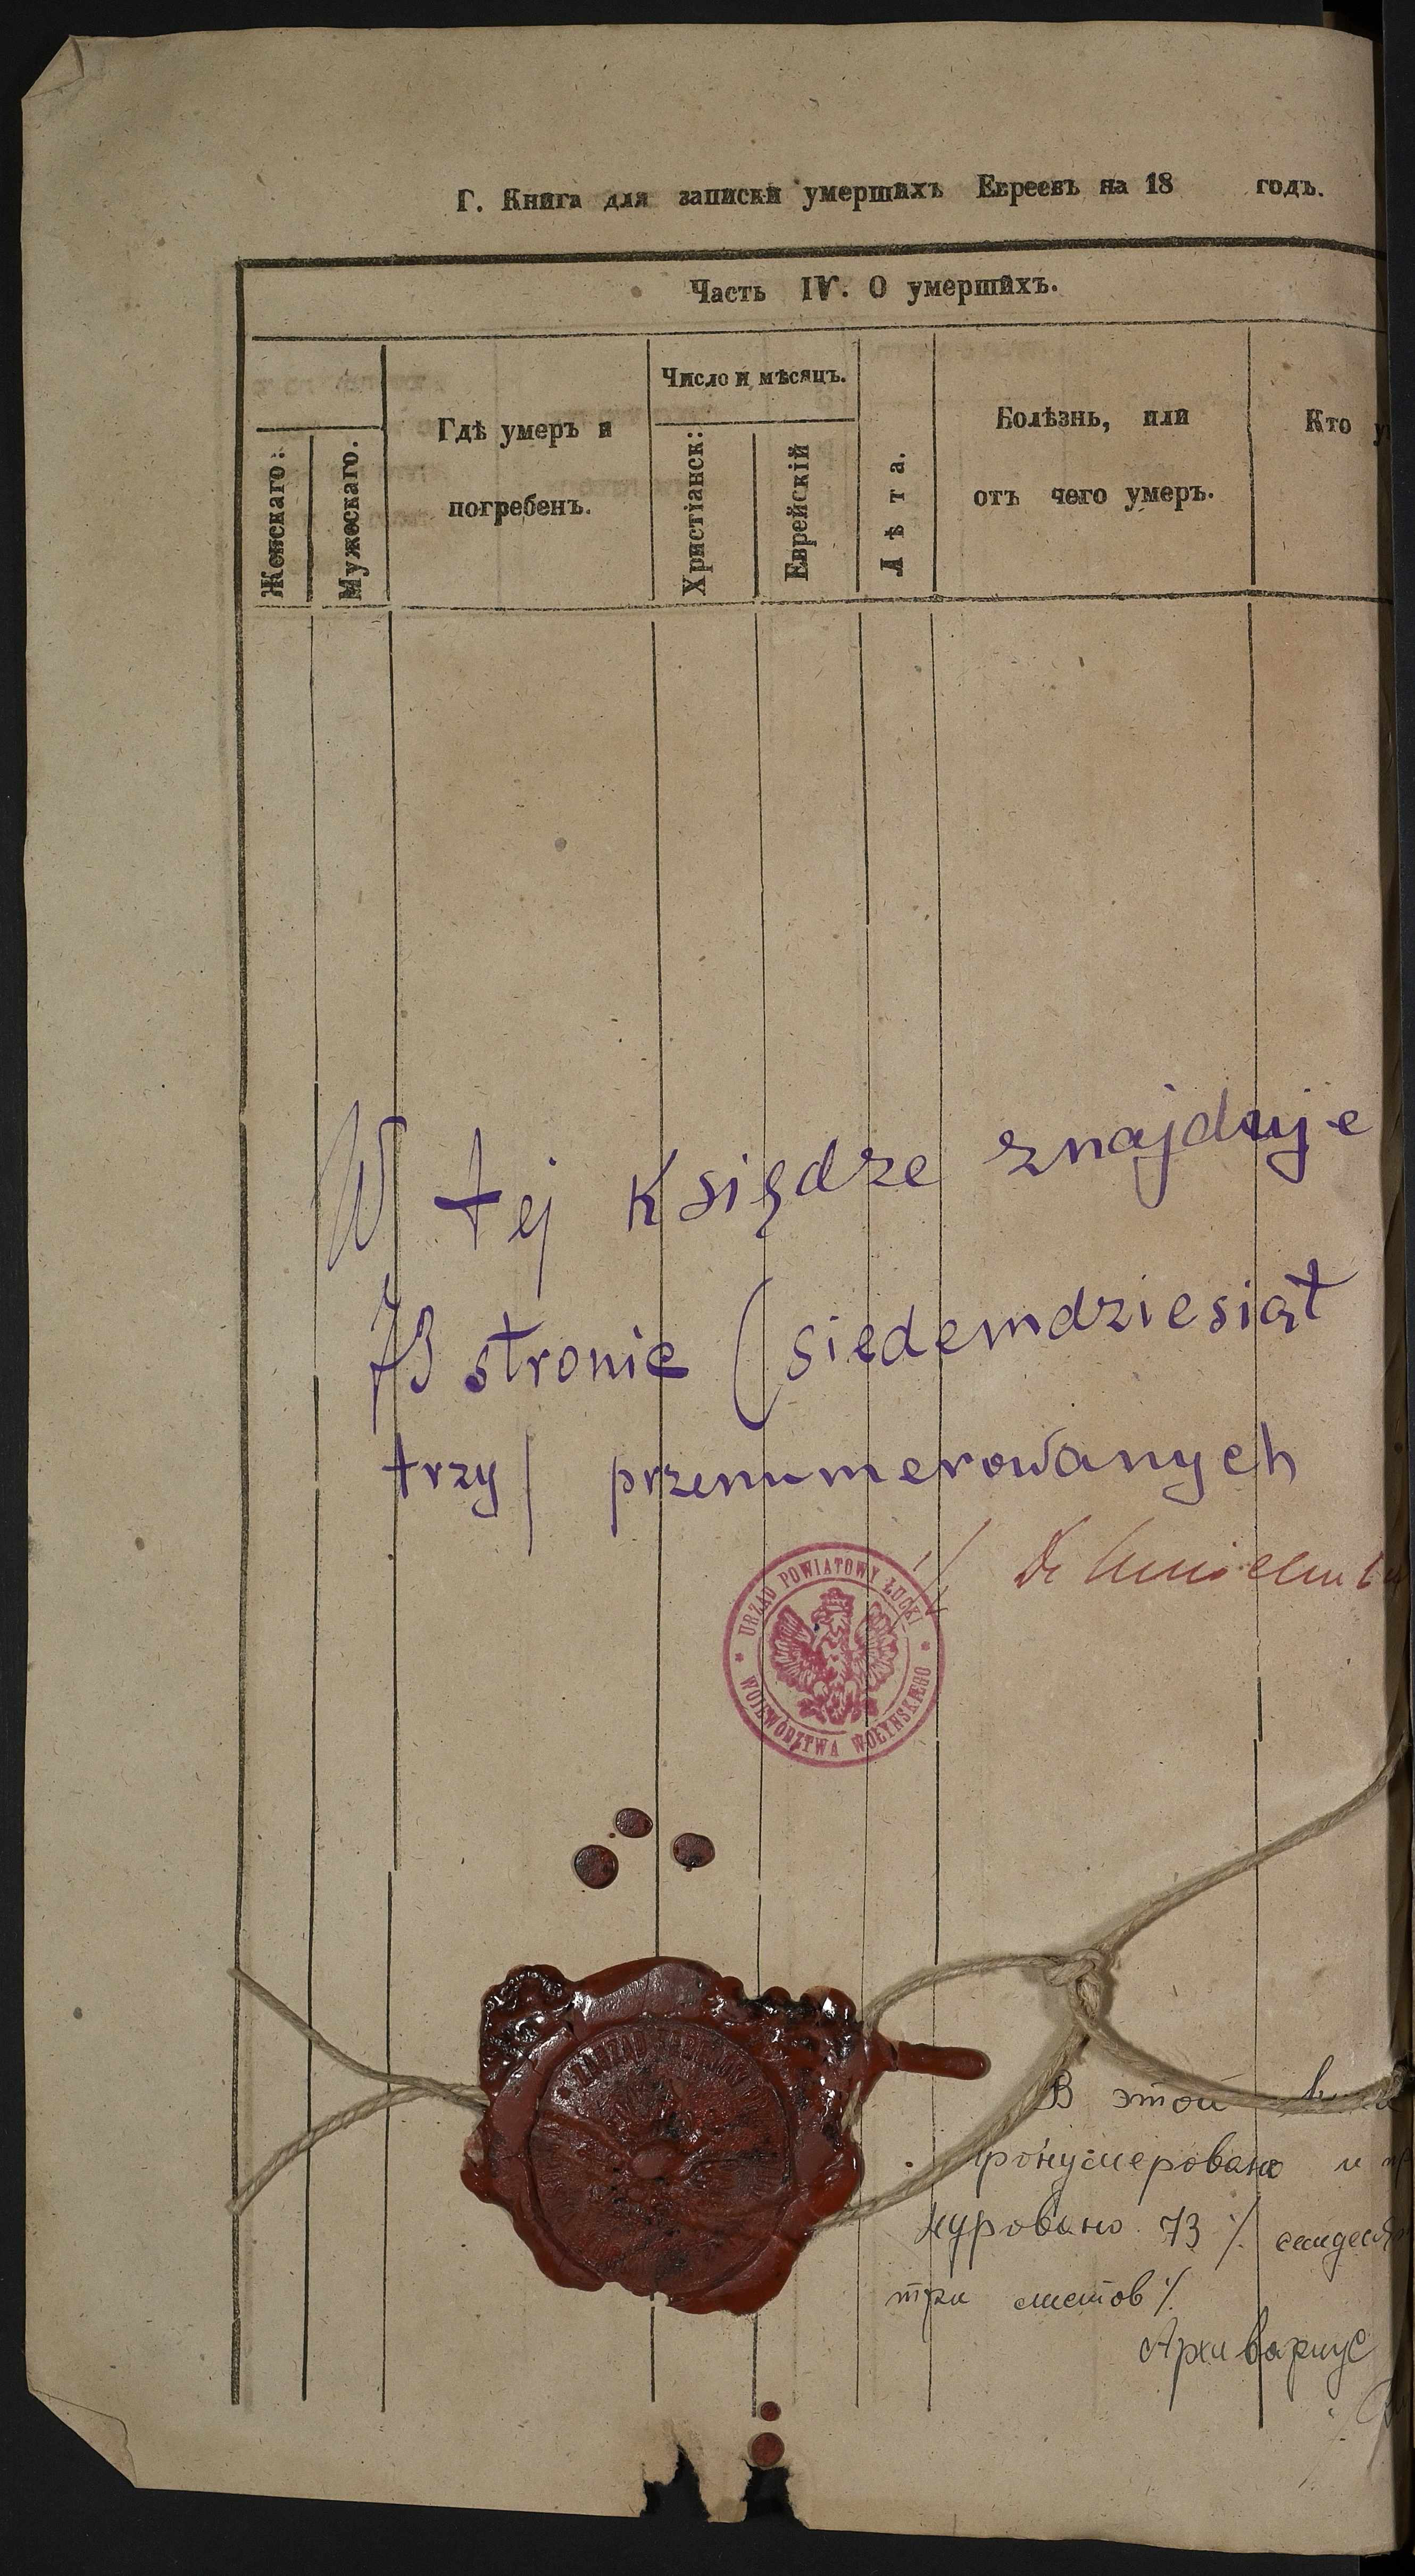 Г. Книга для записки умершихъ Евреевъ на 18 годъ.
Часть IV. О умершихъ.
Женскаго:
Мужескаго.
Гдѣ умеръ и
погребенъ.
Число и мѣсяцъ.
Христіанск:
Еврейскій
Лѣта.
Болѣзнь, или
отъ чего умеръ.
Кто
W tej księdze znajduje
73 stronie (siedemdziesiąt
trzy) przenumerowanych
URZĄD POWIATOWY ŁUCKI
WOJEWÓDZTWA WOŁYŃSKIEGO
В этой
пронумеровано и
нуровано 73 /.
три листов /.
Архивариус